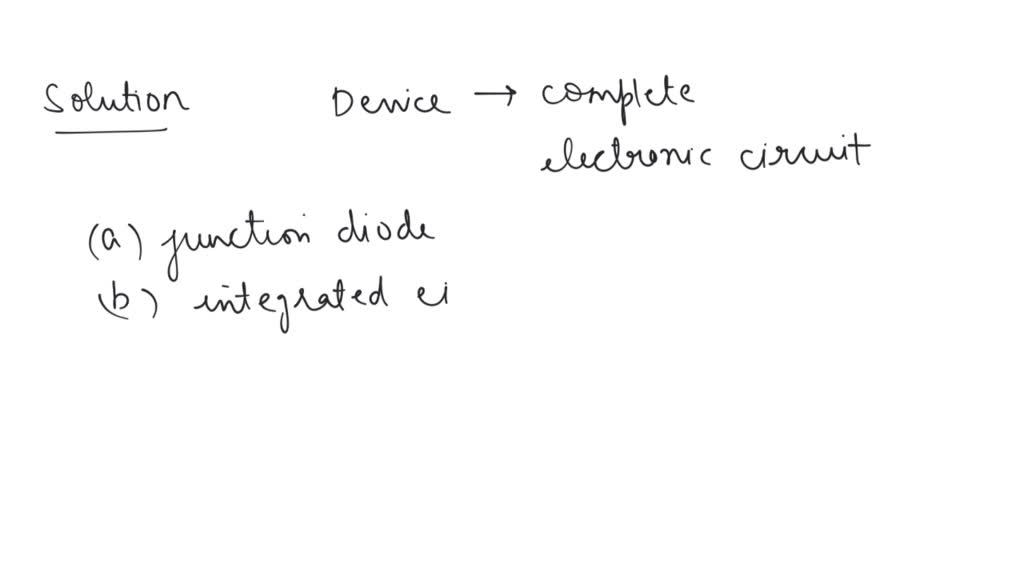 Solution Device → complete
electronic circuit
(a) junction diode
(b) integrated ci